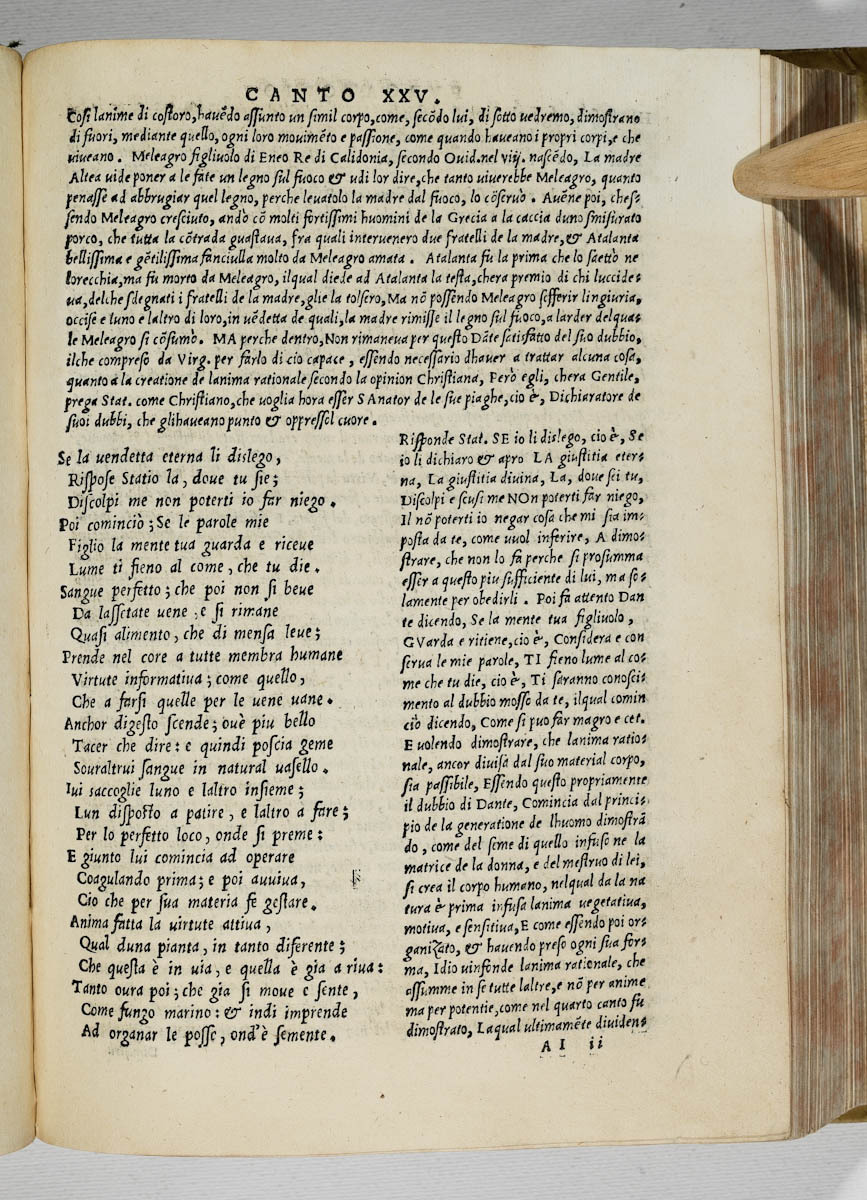 CANTO XXV.
Cosi lanime di costoro, havẽdo assunto un simil corpo, come, secõdo lui, di sotto vedremo, dimostrano
di fuori, mediante quello, ogni loro movimẽto e passione, come quando haveano i propri corpi, e che
viveano. Meleagro figliuolo di Eneo Re di Calidonia, secondo Ovid. nel viij. nascẽdo, La madre
Altea vide poner a le fate un legno sul fuoco & udi lor dire, che tanto viverebbe Meleagro, quanto
penasse ad abbrugiar quel legno, perche levatolo la madre dal fuoco, lo cõservo. Avẽne poi, ches-
sendo Meleagro cresciuto, andò cõ molti fortissimi huomini de la Grecia a la caccia duno smisurato
porco, che tutta la cõtrada guastava, fra quali intervenero due fratelli de la madre, & Atalanta
bellissima e gẽtilissima fanciulla molto da Meleagro amata. Atalanta fu la prima che lo saettò ne
lorecchia, ma fu morto da Meleagro, ilqual diede ad Atalanta la testa, chera premio di chi luccide-
va, delche sdegnati i fratelli de la madre, glie la tolsero, Ma nõ possendo Meleagro sefferir lingiuria,
occise e luno e laltro di loro, in vẽdetta de quali, la madre rimisse il legno sul fuoco, a larder delqua-
le Meleagro si cõsumò. MA perche dentro, Non rimaneva per questo Dãte satisfatto del suo dubbio,
ilche compreso da Virg. per farlo di cio capace, essendo necessario dhaver a trattar alcuna cosa,
quanto a la creatione de lanima rationale secondo la opinion Christiana, Però egli, chera Gentile,
prega Stat. come Christiano, che voglia hora esser SAnator de le sue piaghe, cio è, Dichiaratore de
suoi dubbi, che glihaveano punto & oppressel cuore.
Se la vendetta eterna li dislego,
Rispose Statio la, dove tu sie;
Discolpi me non poterti io far niego.
Poi cominciò; Se le parole mie
Figlio la mente tua guarda e riceve
Lume ti fieno al come, che tu die.
Sangue perfetto; che poi non si beve
Da lassetate vene, e si rimane
Quasi alimento, che di mensa leve;
Prende nel core a tutte membra humane
Virtute informativa; come quello,
Che a farsi quelle per le vene vane.
Anchor digesto scende; ovè piu bello
Tacer che dire: e quindi poscia geme
Sovraltrui sangue in natural vasello.
Ivi saccoglie luno e laltro insieme;
Lun disposto a patire, e laltro a fare;
Per lo perfetto loco, onde si preme:
E giunto lui comincia ad operare
Coagulando prima; e poi avviva,
Cio che per sua materia fe gestare.
Anima fatta la virtute attiva,
Qual duna pianta, in tanto diferente;
Che questa è in via, e quella è gia a riva:
Tanto ovra poi; che gia si move e sente,
Come fungo marino: & indi imprende
Ad organar le posse, ond'è semente.
Risponde Stat. SE io li dislego, cio è, Se
io li dichiaro & apro LA giustitia eter-
na, La giustitia divina, La, dove sei tu,
Discolpi e scusi me NOn poterti far niego,
Il nõ poterti io negar cosa che mi sia im-
posta da te, come vuol inferire, A dimo-
strare, che non lo fa perche si prosumma
esser a questo piu sufficiente di lui, ma so-
lamente per obedirli. Poi fa attento Dan
te dicendo, Se la mente tua figliuolo,
GVarda e ritiene, cio è, Considera e con
serva le mie parole, TI fieno lume al co-
me che tu die, cio è, Ti saranno conosci-
mento al dubbio mosso da te, ilqual comin
ciò dicendo, Come si puo far magro e cet.
E volendo dimostrare, che lanima ratio-
nale, ancor divisa dal suo material corpo,
sia passibile, Essendo questo propriamente
il dubbio di Dante, Comincia dal princi-
pio de la generatione de lhuomo dimostrã
do, come del seme di quello infuso ne la
matrice de la donna, e del mestruo di lei,
si crea il corpo humano, nelqual da la na
tura è prima infusa lanima vegetativa,
motiva, e sensitiva, E come essendo poi or-
ganizato, & havendo preso ogni sua for-
ma, Idio vinfonde lanima rationale, che
assumme in se tutte laltre, e nõ per anime
ma per potentie, come nel quarto canto fu
dimostrato, Laqual ultimamẽte dividen-
AI ii